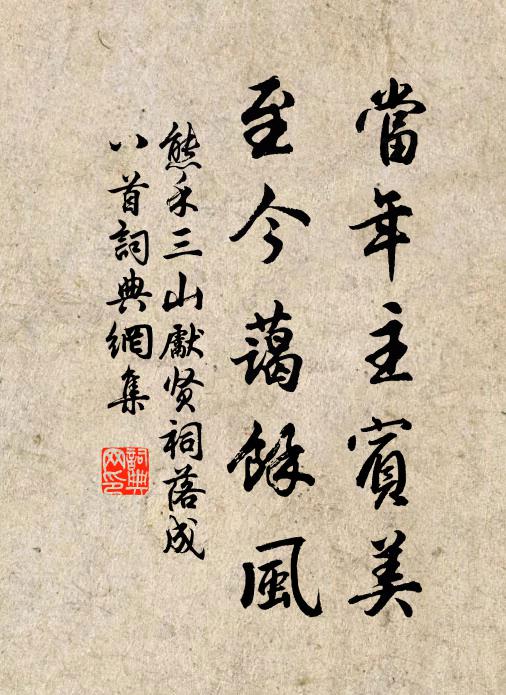 當年主賓美
至今藹餘風
熊禾三山獻贤祠落成
八首詞典網集
詞典網印